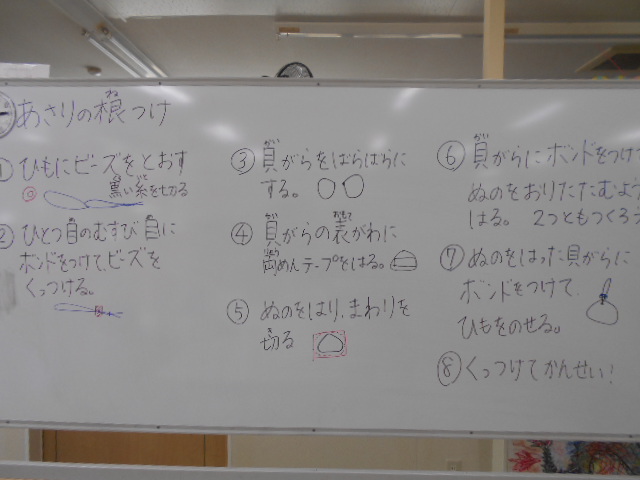 あさりの根つけ
ね
①ひもにビーズをとおす
黒い糸を切る
②ひとつ目のむすび目に
ボンドをつけて、ビーズを
くっつける。
③貝がらをばらばらに
する。
④貝がらの表がわに
両めんテープをはる。
⑤ぬのをはり、まわりを
切る
⑥貝がらにボンドをつけて
ぬのをおりたたむよう
はる。 2つともつくろう
⑦ぬのをはった貝がらに
ボンドをつけて、
ひもをのせる。
⑧くっつけてかんせい!